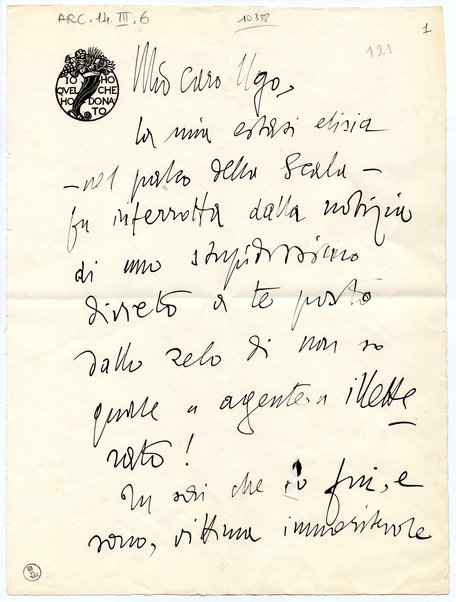 ARC. 14. III. 6
10358
1
121
IO HO
QVEL CHE
HO DONA
TO
Mio caro Ugo,
la mia estasi elisia
– nel palco della Scala –
fu interrotta dalla notizia
di uno stupidissimo
divieto a te posto
dallo zelo di non so
quale "agente" illette
rato!
Tu sai che io fui, e
sono, vittima immeritevole